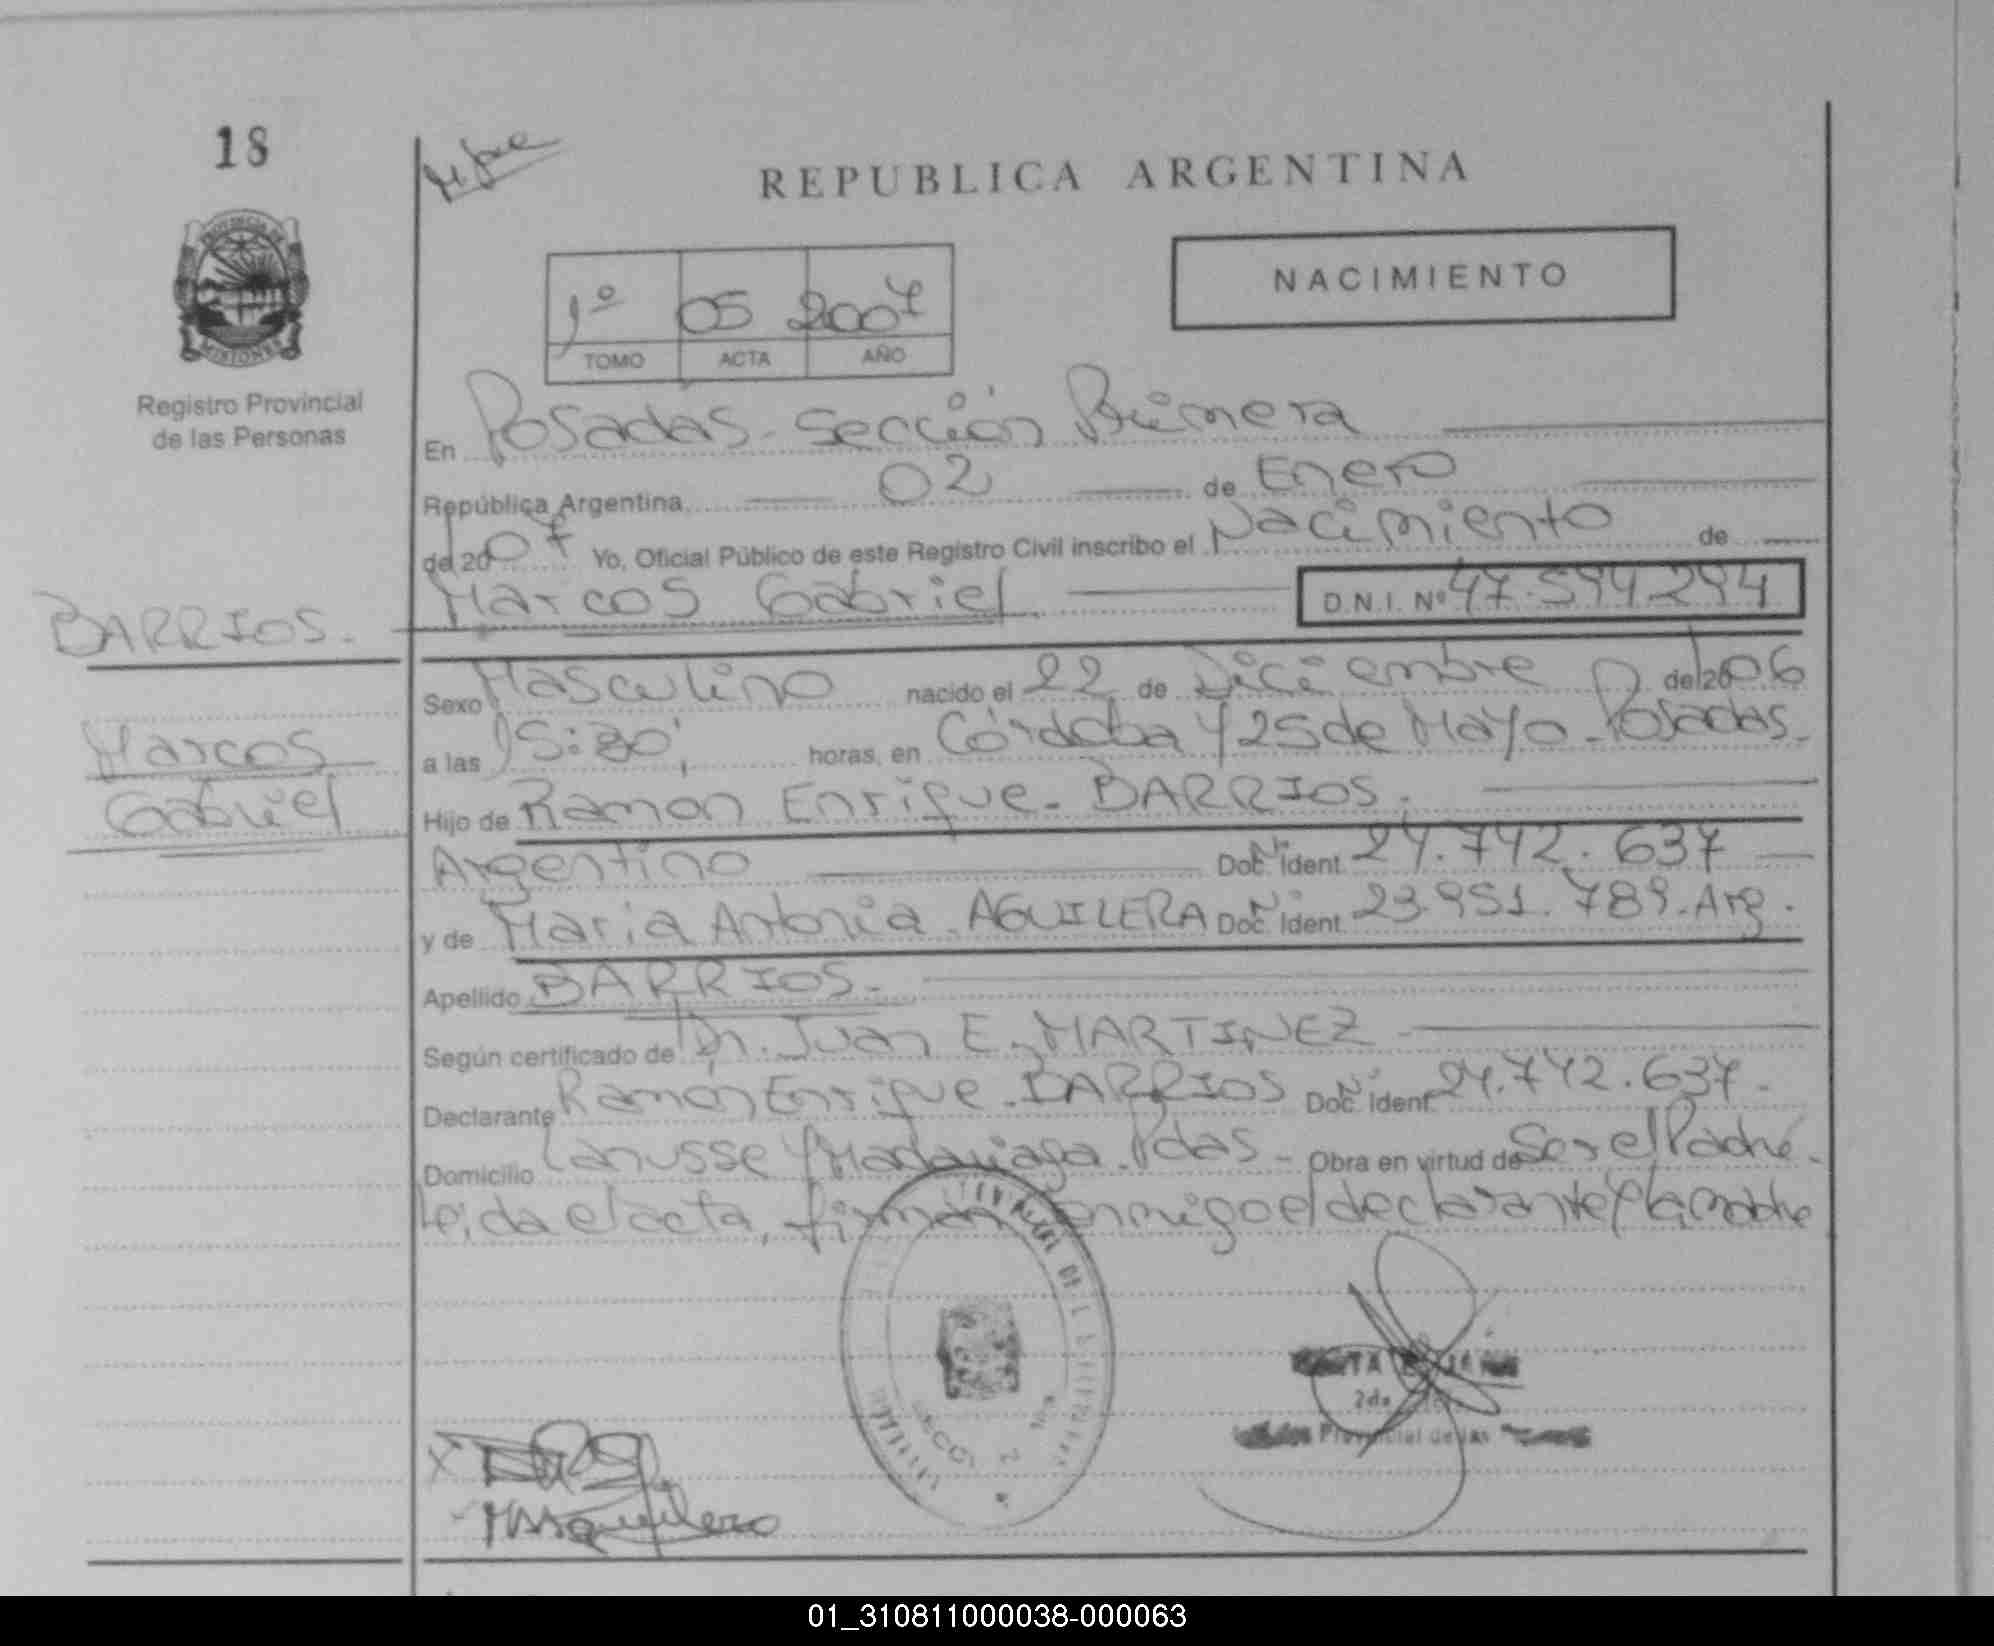 18
REPUBLICA ARGENTINA
PROVINCIA DE
MISIONES
Registro Provincial
de las Personas
1º 05 2007
TOMO ACTA AÑO
NACIMIENTO
En Posadas - Sección Primera
República Argentina, 02 de Enero
del 2007 Yo, Oficial Público de este Registro Civil inscribo el Nacimiento de
Marcos Gabriel D.N.I. Nº 47.594.294
BARRIOS.
Marcos
Gabriel
Sexo Masculino nacido el 22 de Diciembre del 2006
a las 15:30', horas, en Córdoba y 25 de Mayo - Posadas.
Hijo de Ramon Enrique - BARRIOS.
Argentino Doc. Nº Ident. 24.742.637
y de Maria Antonia - AGUILERA Doc. Nº Ident. 23.951.789 - Arg.
Apellido BARRIOS.-
Según certificado de Dr. Juan E. MARTINEZ
Declarante Ramón Enrique - BARRIOS Doc. Nº Ident. 24.742.637.-
Domicilio Lanusse y Madariaga. Pdas - Obra en virtud de Ser el Padre.
Leida el acta, firman conmigo el declarante y la madre
2do
Provincial de las
MAguilera
01_310811000038-000063